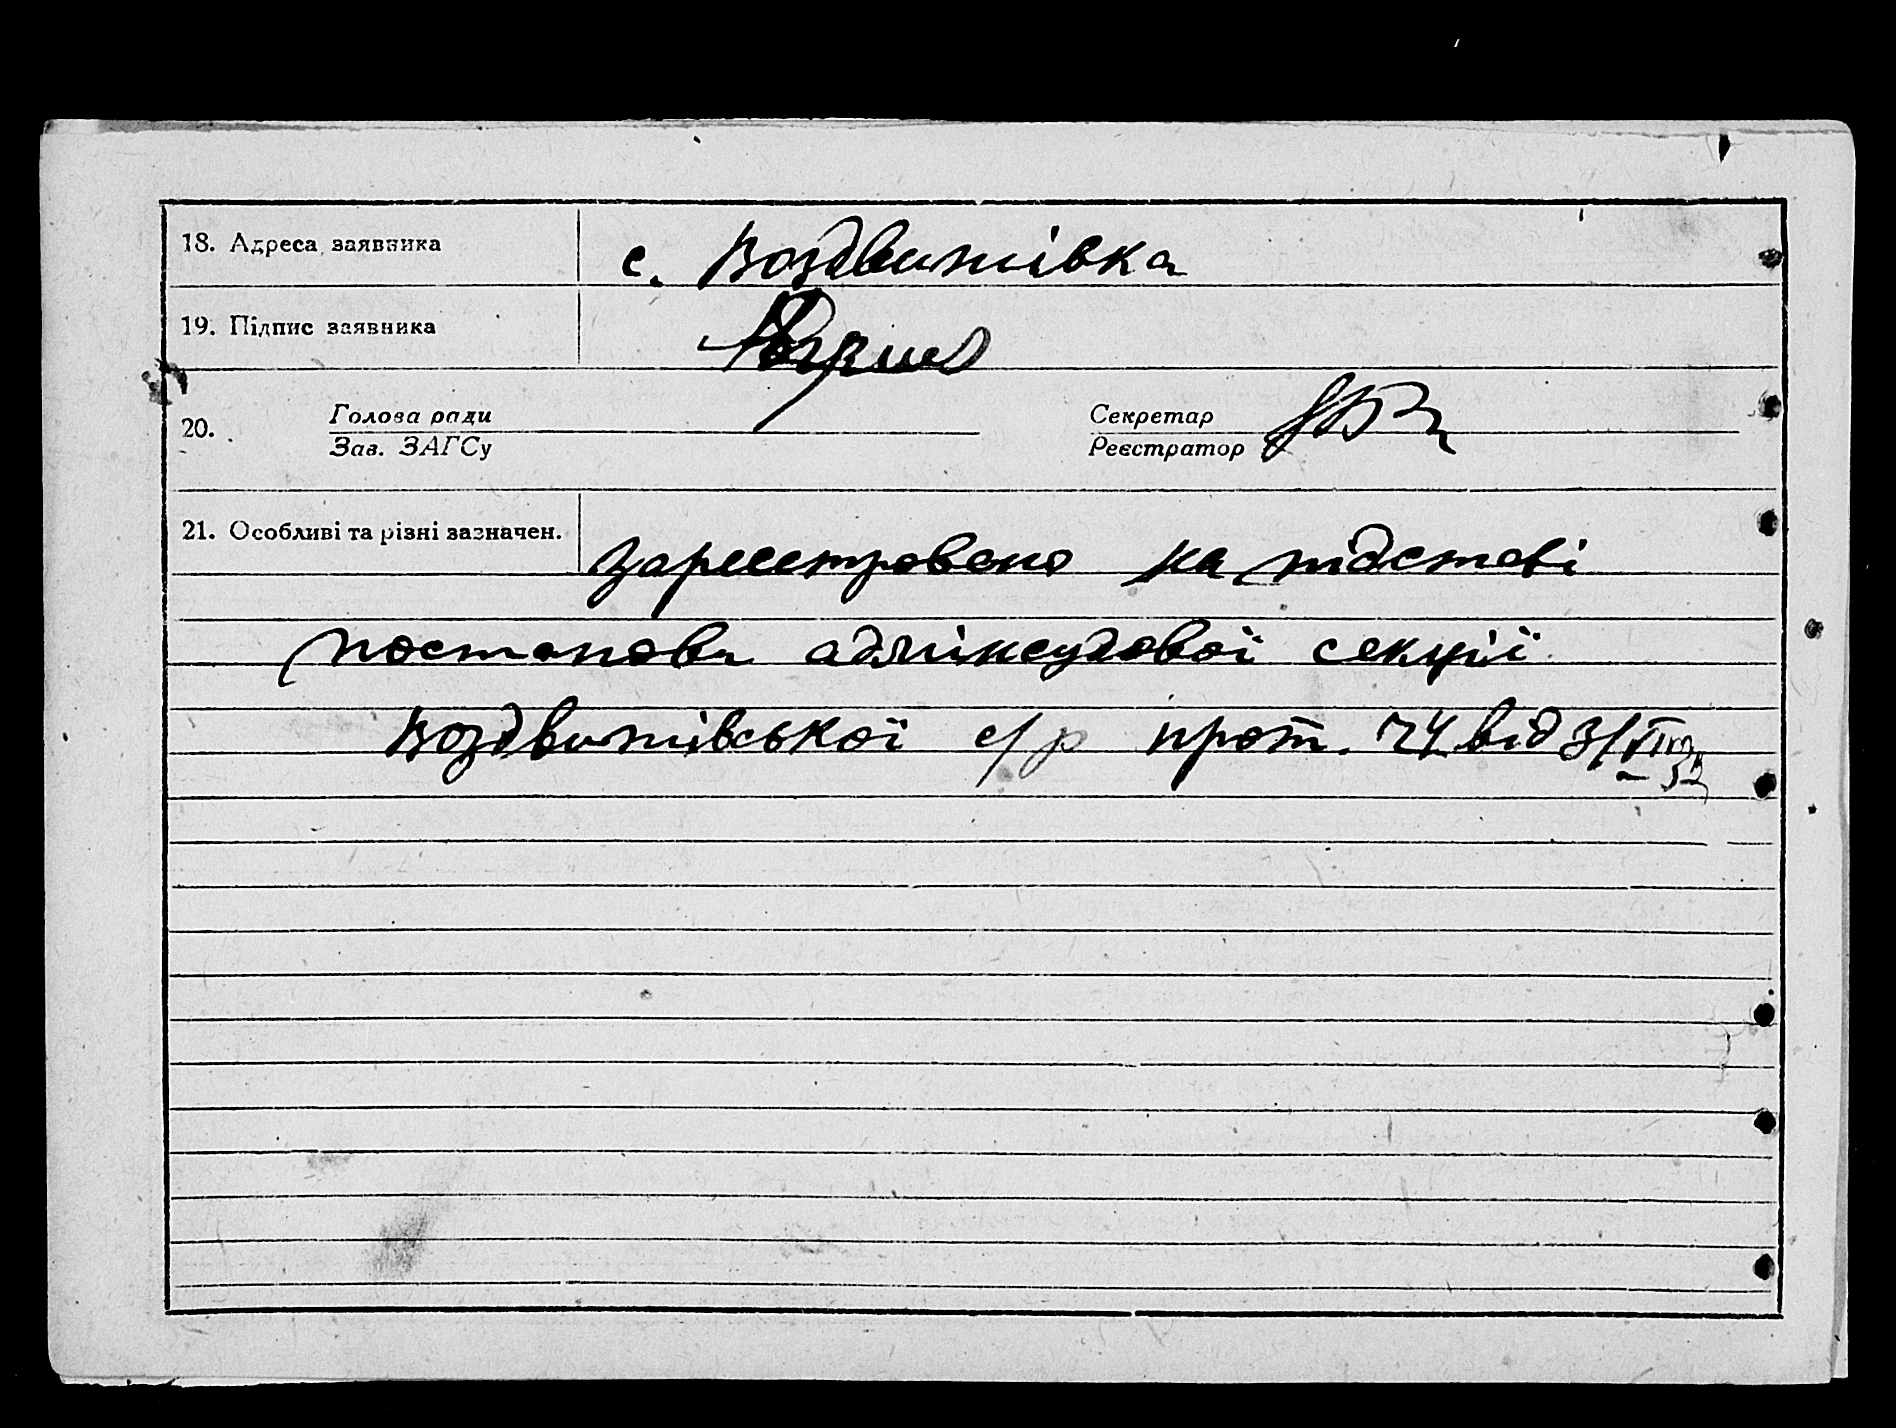 18. Адреса заявника с. Воздвижівка
19. Підпис заявника
20. Голова ради Секретар
Зав. ЗАГСу Реєстратор
21. Особливі та різні зазначен.
зареєстровано на підставі
постанови адмінсудової секції
Воздвижівської с/р прот. 24 від 3/